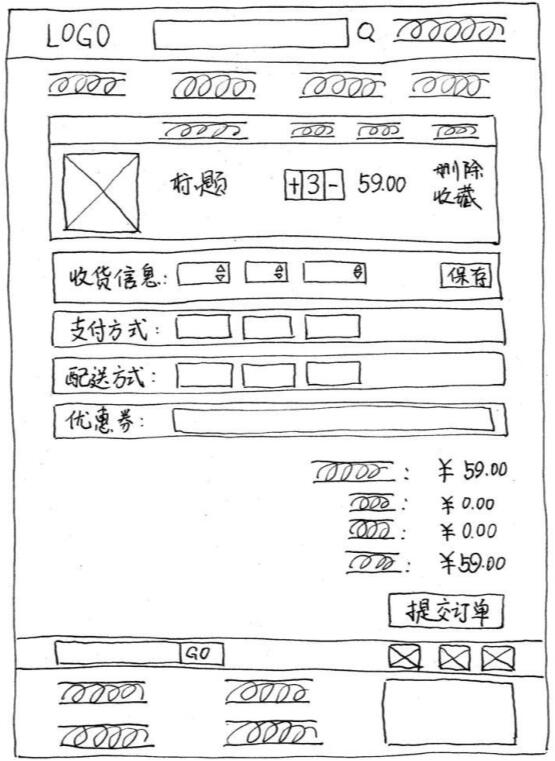 LOGO
标题 +3- 59.00 删除
收藏
收货信息: 保存
支付方式:
配送方式:
优惠券:
: ¥ 59.00
: ¥ 0.00
: ¥ 0.00
: ¥59.00
提交订单
GO